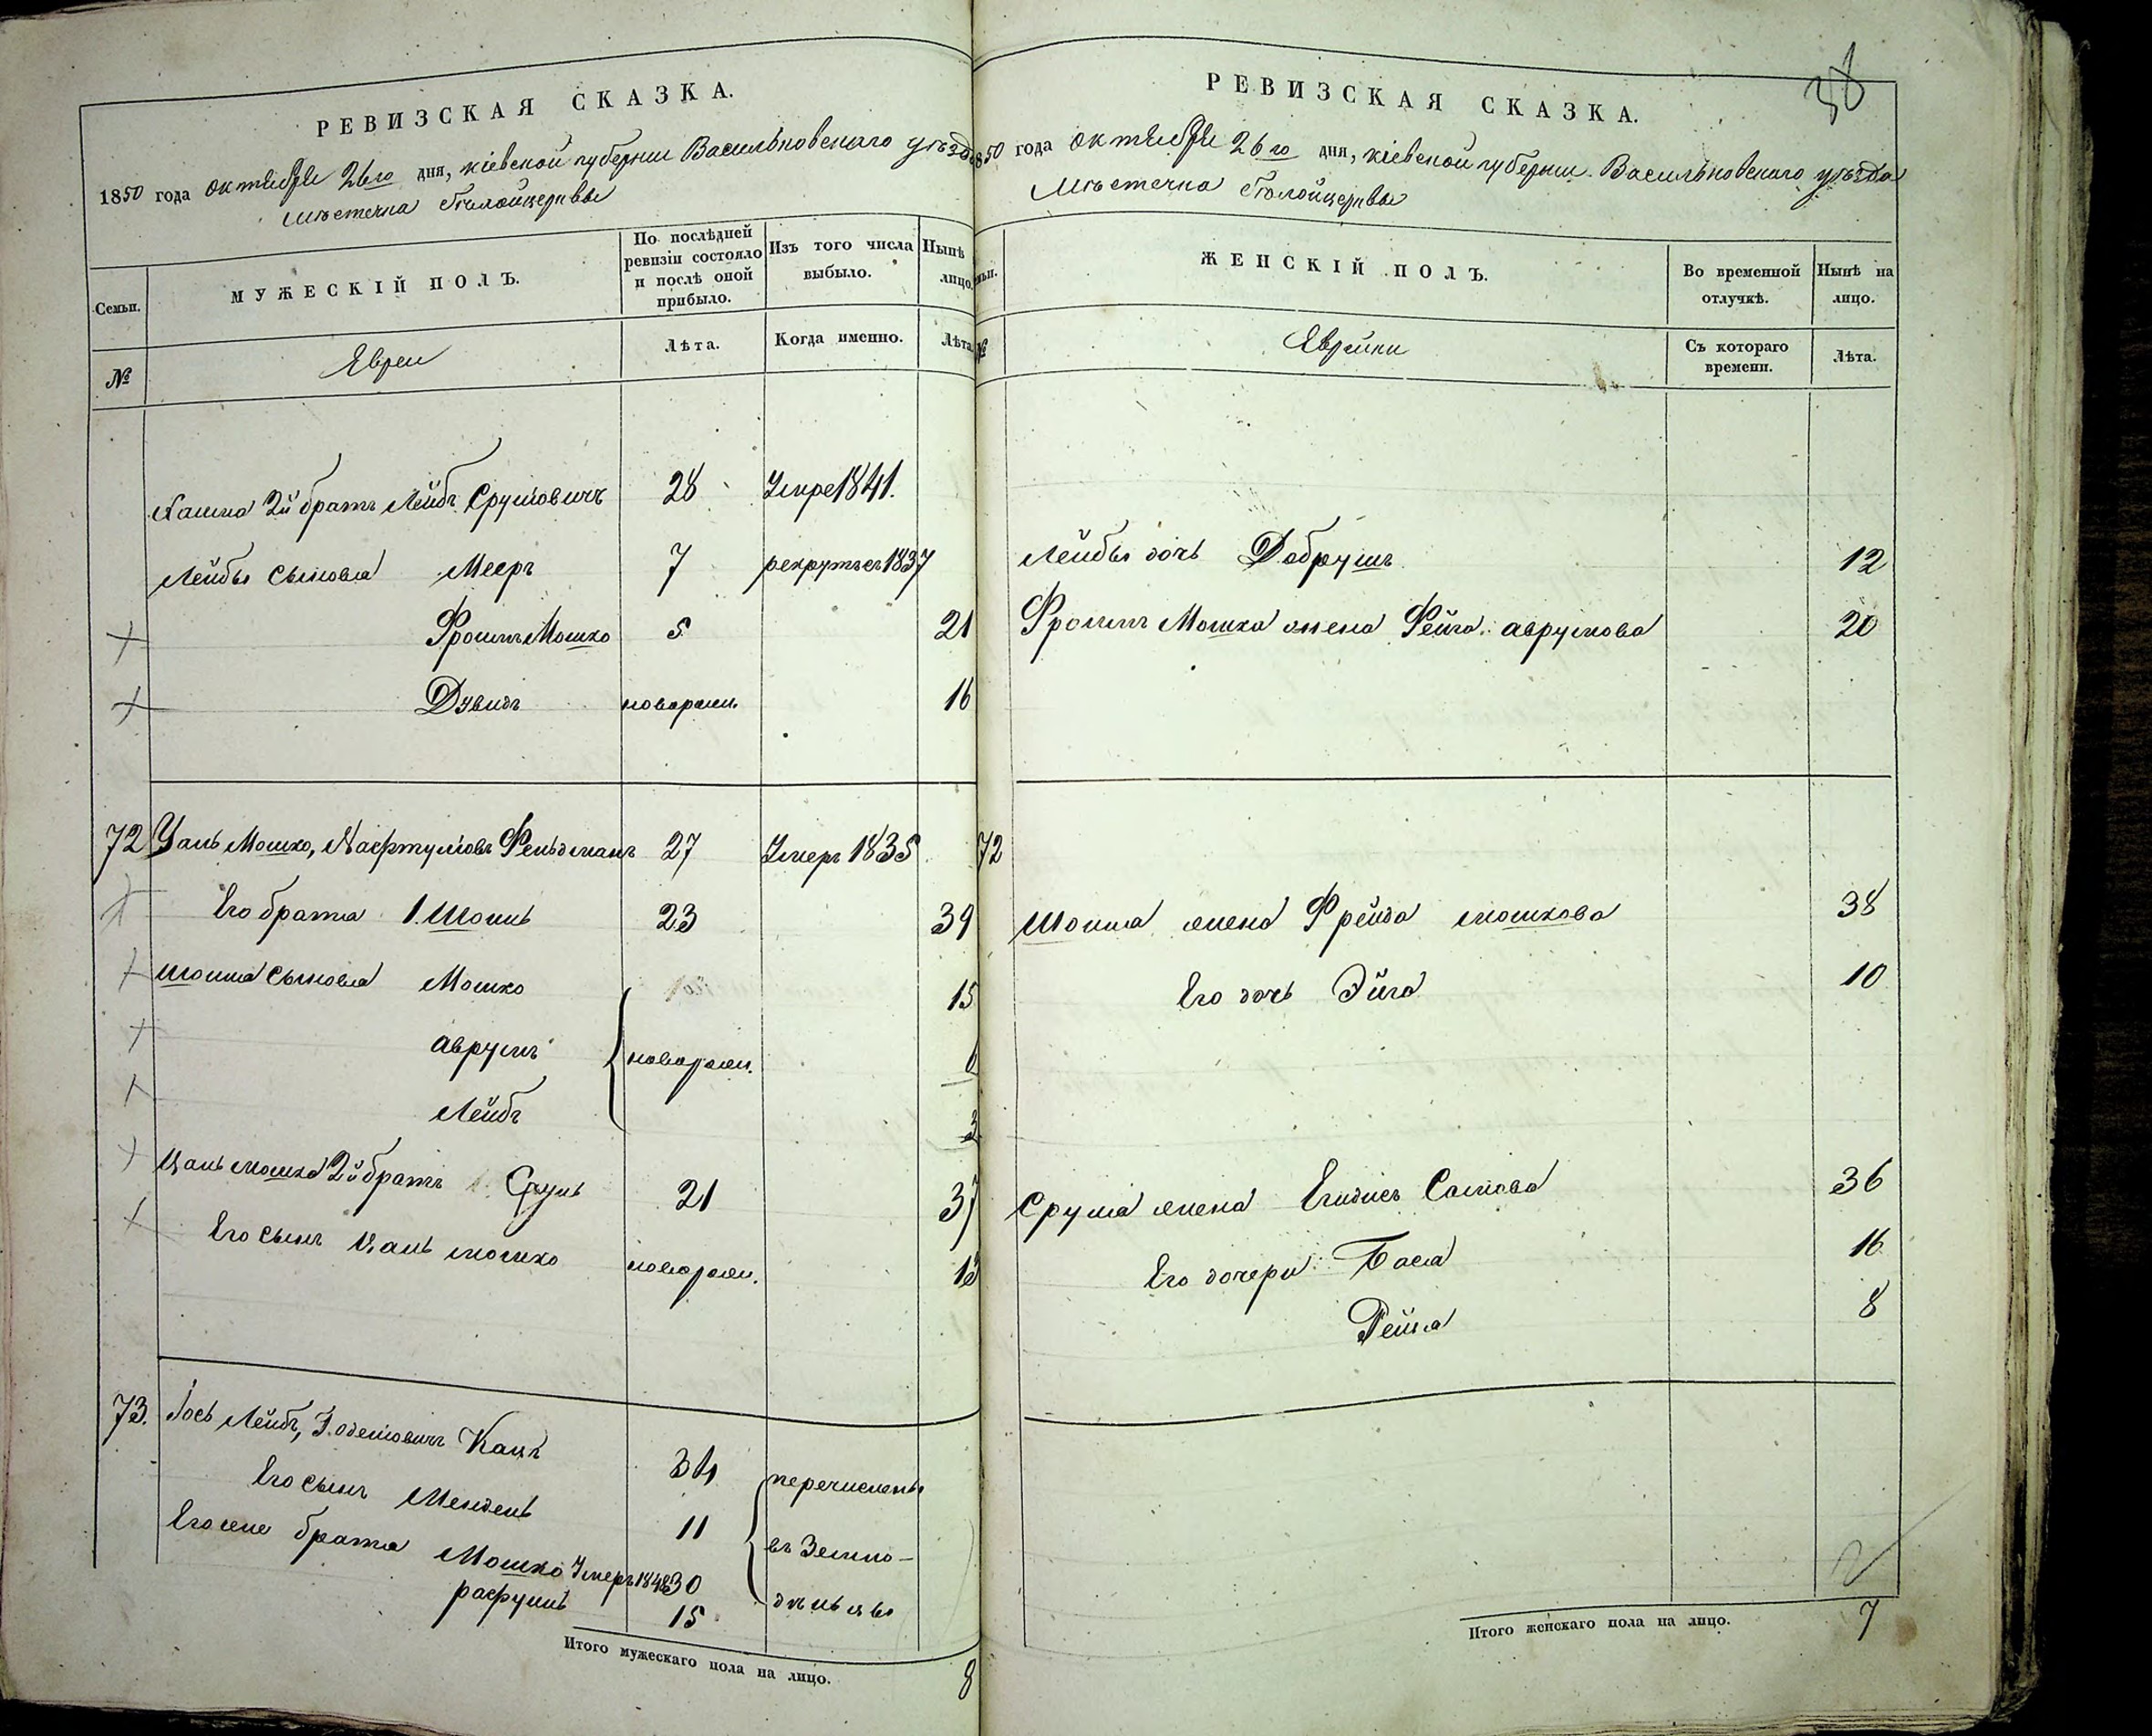 РЕВИЗСКАЯ СКАЗКА.
1850 года октября 26го дня, кіевской губерніи Васильковскаго уѣзда
мѣстечка Бѣлойцеркви
Семьи.
МУЖЕСКІЙ ПОЛЪ.
По послѣдней ревизіи состояло и послѣ оной прибыло.
Изъ того числа выбыло.
Нынѣ лицо.
№
Евреи
Лѣта.
Когда именно.
Лѣта
2й братъ Лейбъ Срулiовичъ 28 Умре 1841.
Лейбы сыновья Мееръ 7 рекрутъ съ 1837
Фроимъ Мошко 5 21
Дувидъ новорожд. 16
72 Цаль Мошко, Нафтулiовъ Фельдманъ 27 Умеръ 1835
Его братья 1. Шоиль 23 39
Шоиля сыновья Мошко 15
Аврумъ новорожд. 6
Лейбъ 3
Цаль мошка 2й братъ Сруль 21 37
Его сынъ Цаль мошко новорожд. 13
73. Іось Лейбъ, Кацъ 34 перечислены
Его сынъ Мендель 11 въ Земле-
Его же братья Мошко Умеръ 1848 30 дѣльцы
рафуиль 15
Итого мужескаго пола на лицо. 8
38
РЕВИЗСКАЯ СКАЗКА.
1850 года октября 26го дня, кіевской губерніи Васильковскаго уѣзда
Мѣстечка Бѣлойцеркви
ЖЕНСКІЙ ПОЛЪ.
Во временной отлучкѣ.
Нынѣ на лицо.
№
Еврейки
Съ котораго времени.
Лѣта.
Лейбы дочь Добрушъ 12
Фроимъ Мошка жена Фейга аврумова 20
72
Шоиля жена Фрейда мошкова 38
Его дочь Эйга 10
Сруля жена 36
Его дочери Бася 16
Рейза 8
Итого женскаго пола на лицо. 7